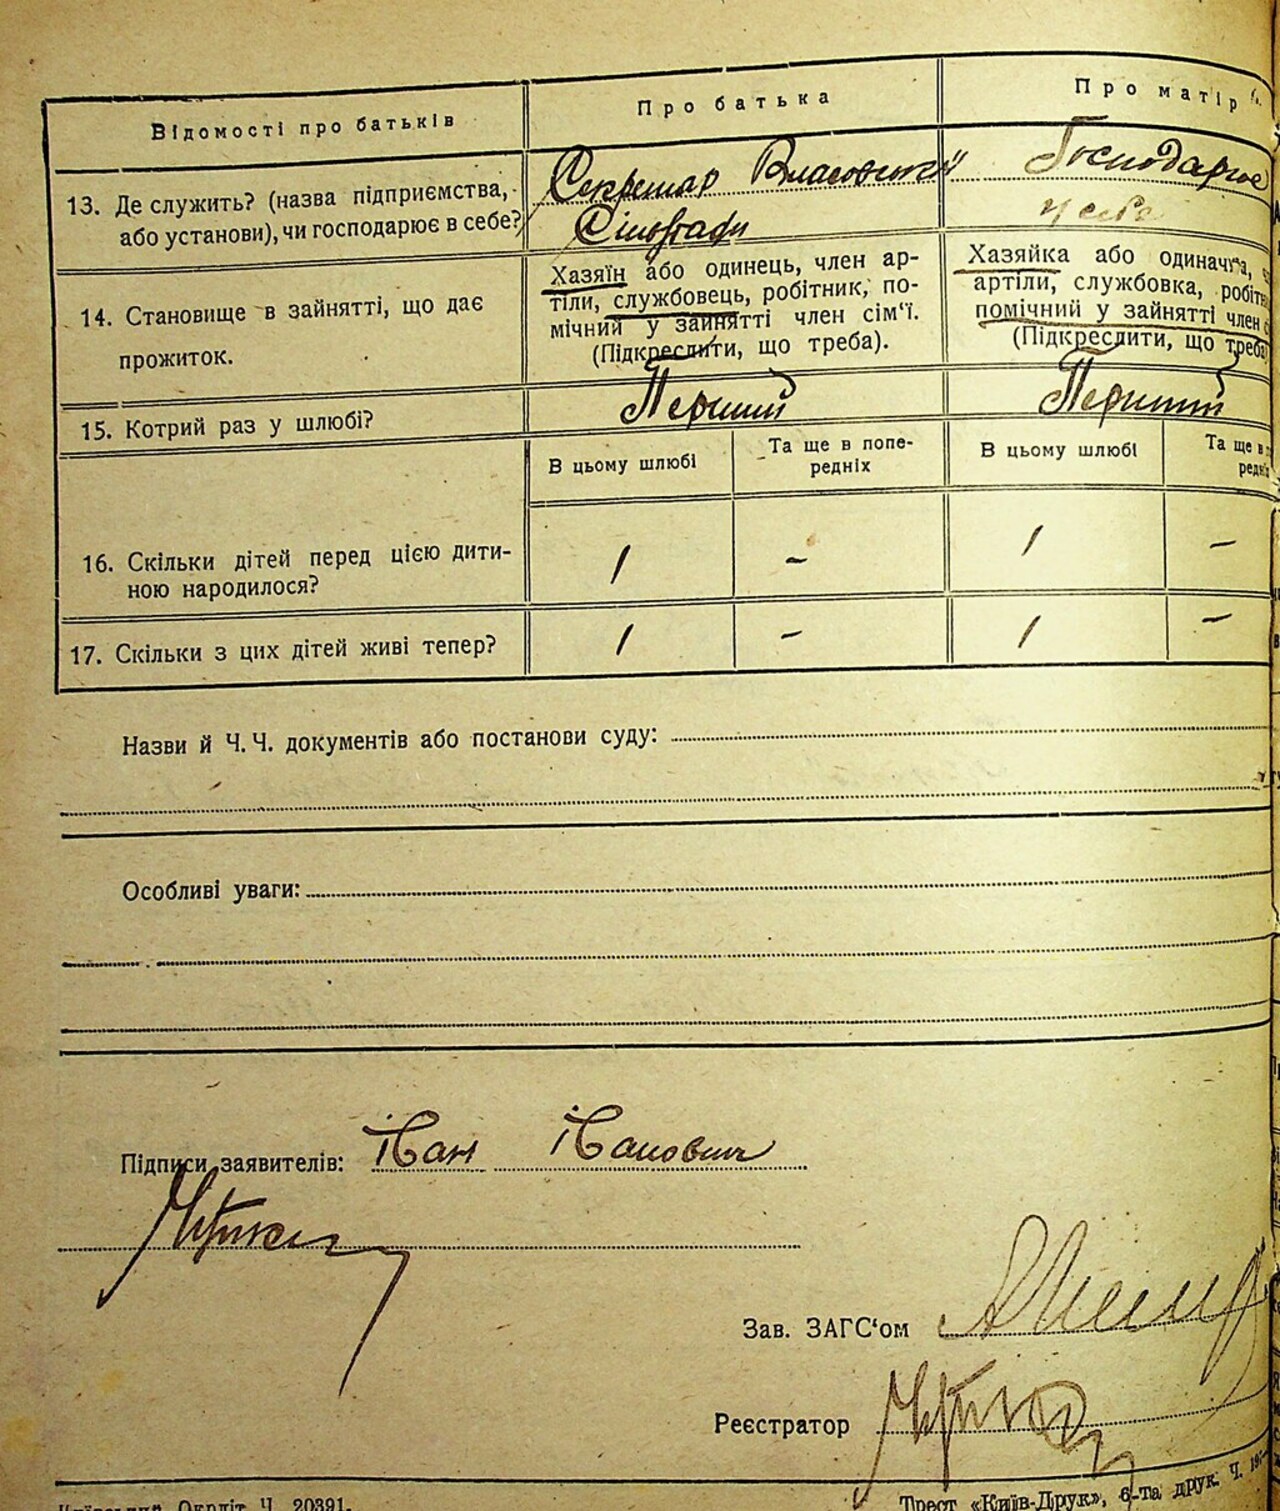 Відомості про батьків
Про батька
Про матір
13. Де служить? (назва підприємства,
або установи), чи господарює в себе?
Секретар Власовської
Сільради
Господарює
у себе
14. Становище в зайнятті, що дає
прожиток.
Хазяїн або одинець, член ар-
тіли, службовець, робітник, по-
мічний у зайнятті член сім'ї.
(Підкреслити, що треба).
Хазяйка або одиначка,
артіли, службовка, робіт
помічний у зайнятті член
(Підкреслити, що треба)
15. Котрий раз у шлюбі?
Перший
Перший
В цьому шлюбі
Та ще в попе-
редніх
В цьому шлюбі
Та ще в
редніх
16. Скільки дітей перед цією дити-
ною народилося?
1
-
1
-
17. Скільки з цих дітей живі тепер?
1
-
1
-
Назви й Ч. Ч. документів або постанови суду:
Особливі уваги:
Підписи заявителів: Іван Іванович
Зав. ЗАГС'ом
Реєстратор
Київський Окрліт Ч. 20391.
Трест «Київ-Друк», 6-та друк. Ч.